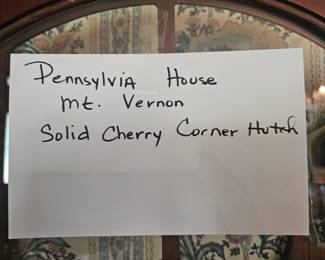 Pennsylvia House
Mt. Vernon
Solid Cherry Corner Hutch